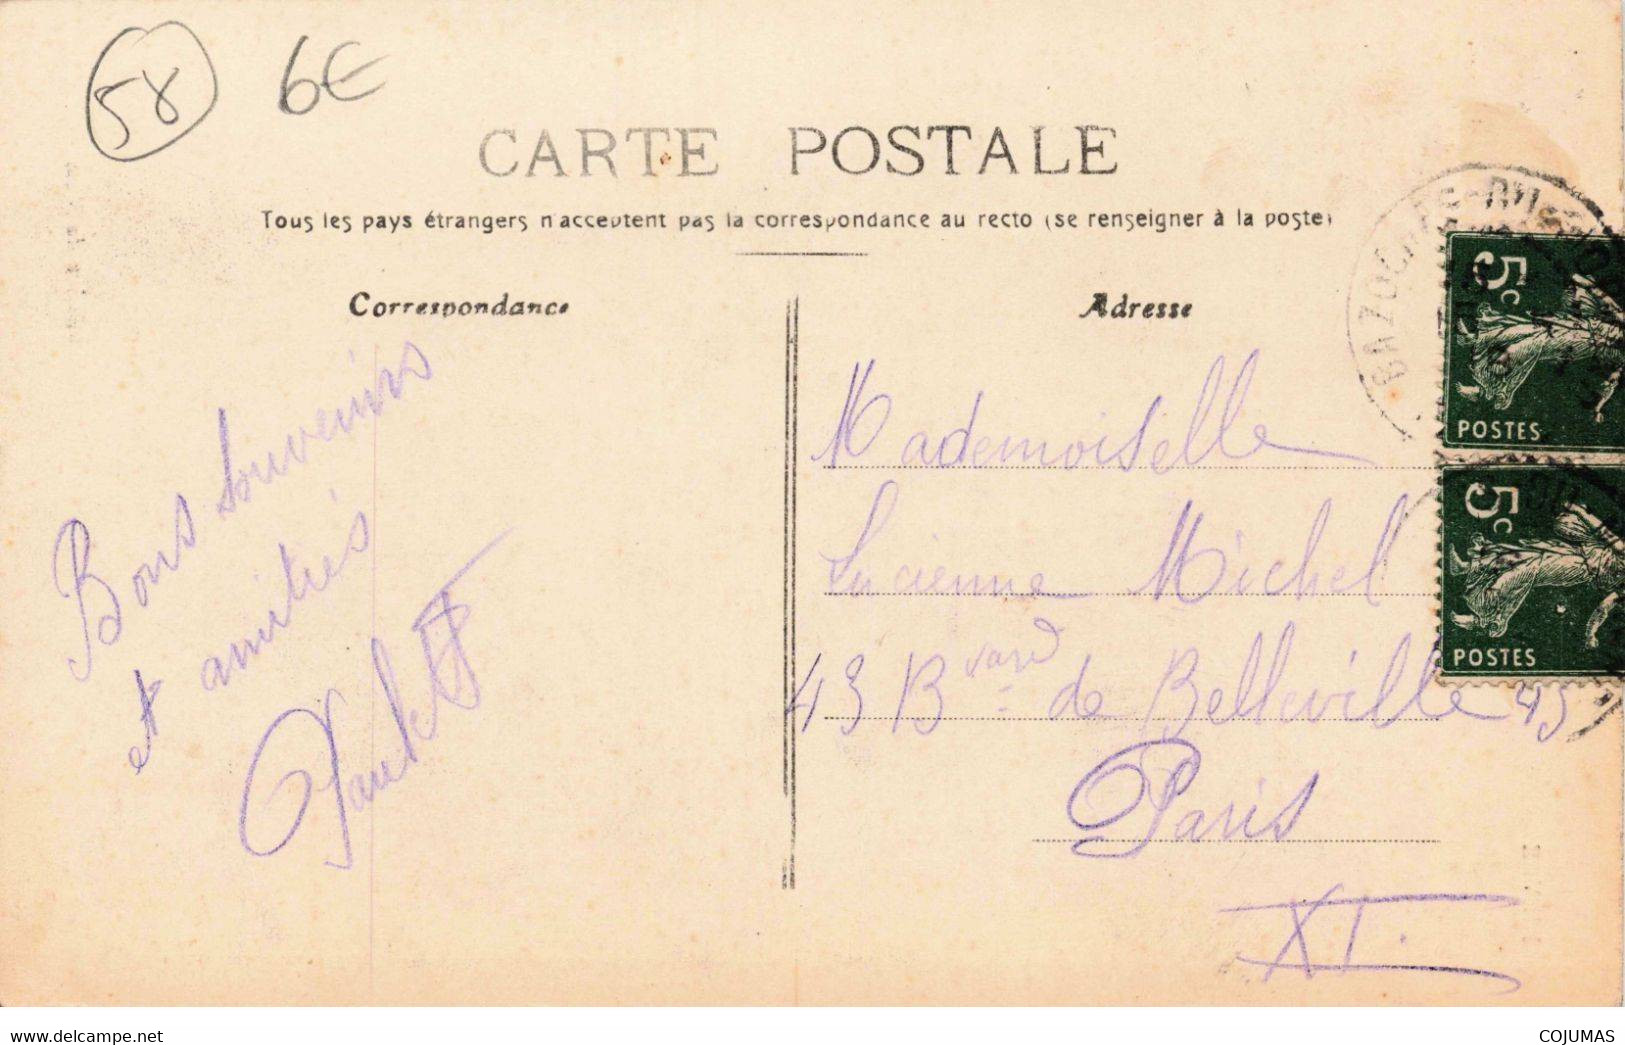 58
6€
CARTE POSTALE
Tous les pays étrangers n'acceptent pas la correspondance au recto (se renseigner à la poste)
Correspondance
Adresse
Bons souvenirs
et amitiés
Mademoiselle
Lucienne Michel
43 Bvard de Belleville 43
Paris
XI.
BAZOCHES-DU-MORVAND
5c
POSTES
5c
POSTES
www.delcampe.net
COJUMAS